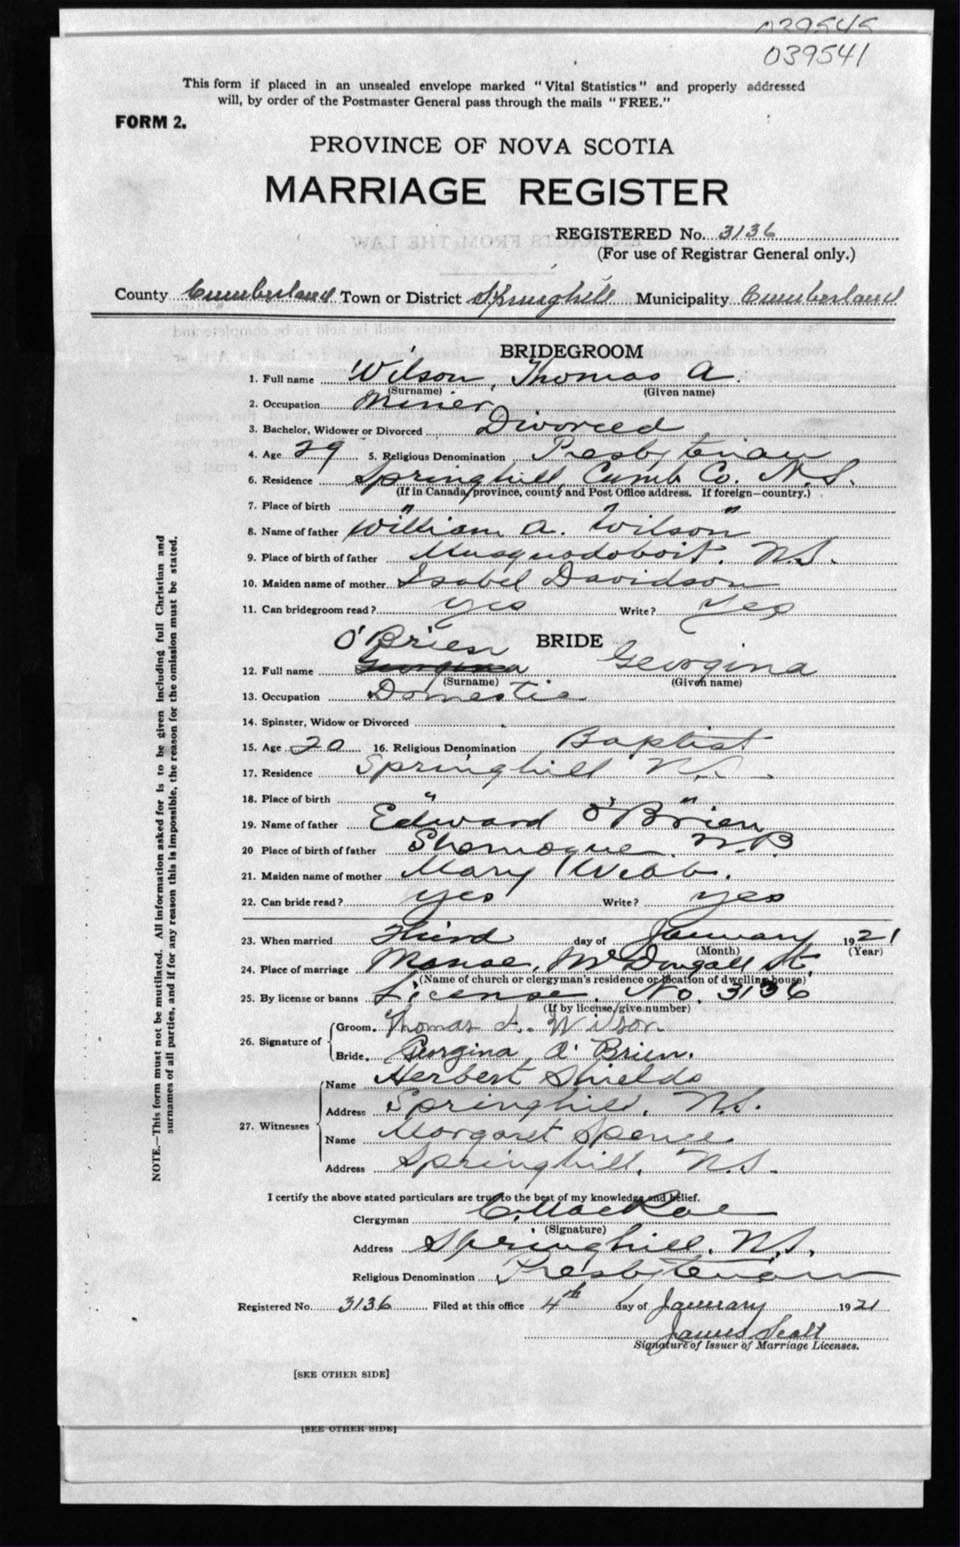 039545
039541
This form if placed in an unsealed envelope marked "Vital Statistics" and properly addressed
will, by order of the Postmaster General pass through the mails "FREE."
FORM 2.
PROVINCE OF NOVA SCOTIA
MARRIAGE REGISTER
REGISTERED No. 3136
(For use of Registrar General only.)
County Cumberland Town or District Springhill Municipality Cumberland
BRIDEGROOM
1. Full name Wilson, Thomas A.
(Surname) (Given name)
2. Occupation Miner
3. Bachelor, Widower or Divorced Divorced
4. Age 29 5. Religious Denomination Presbyterian
6. Residence Springhill, Cumb Co. N.S.
(If in Canada, province, county and Post Office address. If foreign—country.)
7. Place of birth " "
8. Name of father William A. Wilson
9. Place of birth of father Musquodoboit, N.S.
10. Maiden name of mother Isabel Davidson
11. Can bridegroom read? yes Write? Yes
BRIDE
12. Full name O'Brien Georgina Georgina
(Surname) (Given name)
13. Occupation Domestic
14. Spinster, Widow or Divorced
15. Age 20 16. Religious Denomination Baptist
17. Residence Springhill N.S.
18. Place of birth " "
19. Name of father Edward O'Brien
20 Place of birth of father Shemogue, N.B
21. Maiden name of mother Mary Webb.
22. Can bride read? yes Write? yes
23. When married Third day of January 1921
(Month) (Year)
24. Place of marriage Manse, McDougall St.
(Name of church or clergyman's residence or location of dwelling house)
25. By license or banns License. No. 3136
(If by license, give number)
26. Signature of
Groom. Thomas A. Wilson
Bride. Georgina O'Brien.
27. Witnesses
Name Herbert Shields
Address Springhill, N.S.
Name Margaret Spence
Address Springhill, N.S.
I certify the above stated particulars are true to the best of my knowledge and belief.
Clergyman C. MacRae
(Signature)
Address Springhill, N.S.
Religious Denomination Presbyterian
Registered No. 3136 Filed at this office 4th day of January 1921
James Scott
Signature of Issuer of Marriage Licenses.
[SEE OTHER SIDE]
[SEE OTHER SIDE]
NOTE.—This form must not be mutilated. All information asked for is to be given including full Christian and
surnames of all parties, and if for any reason this is impossible, the reason for the omission must be stated.